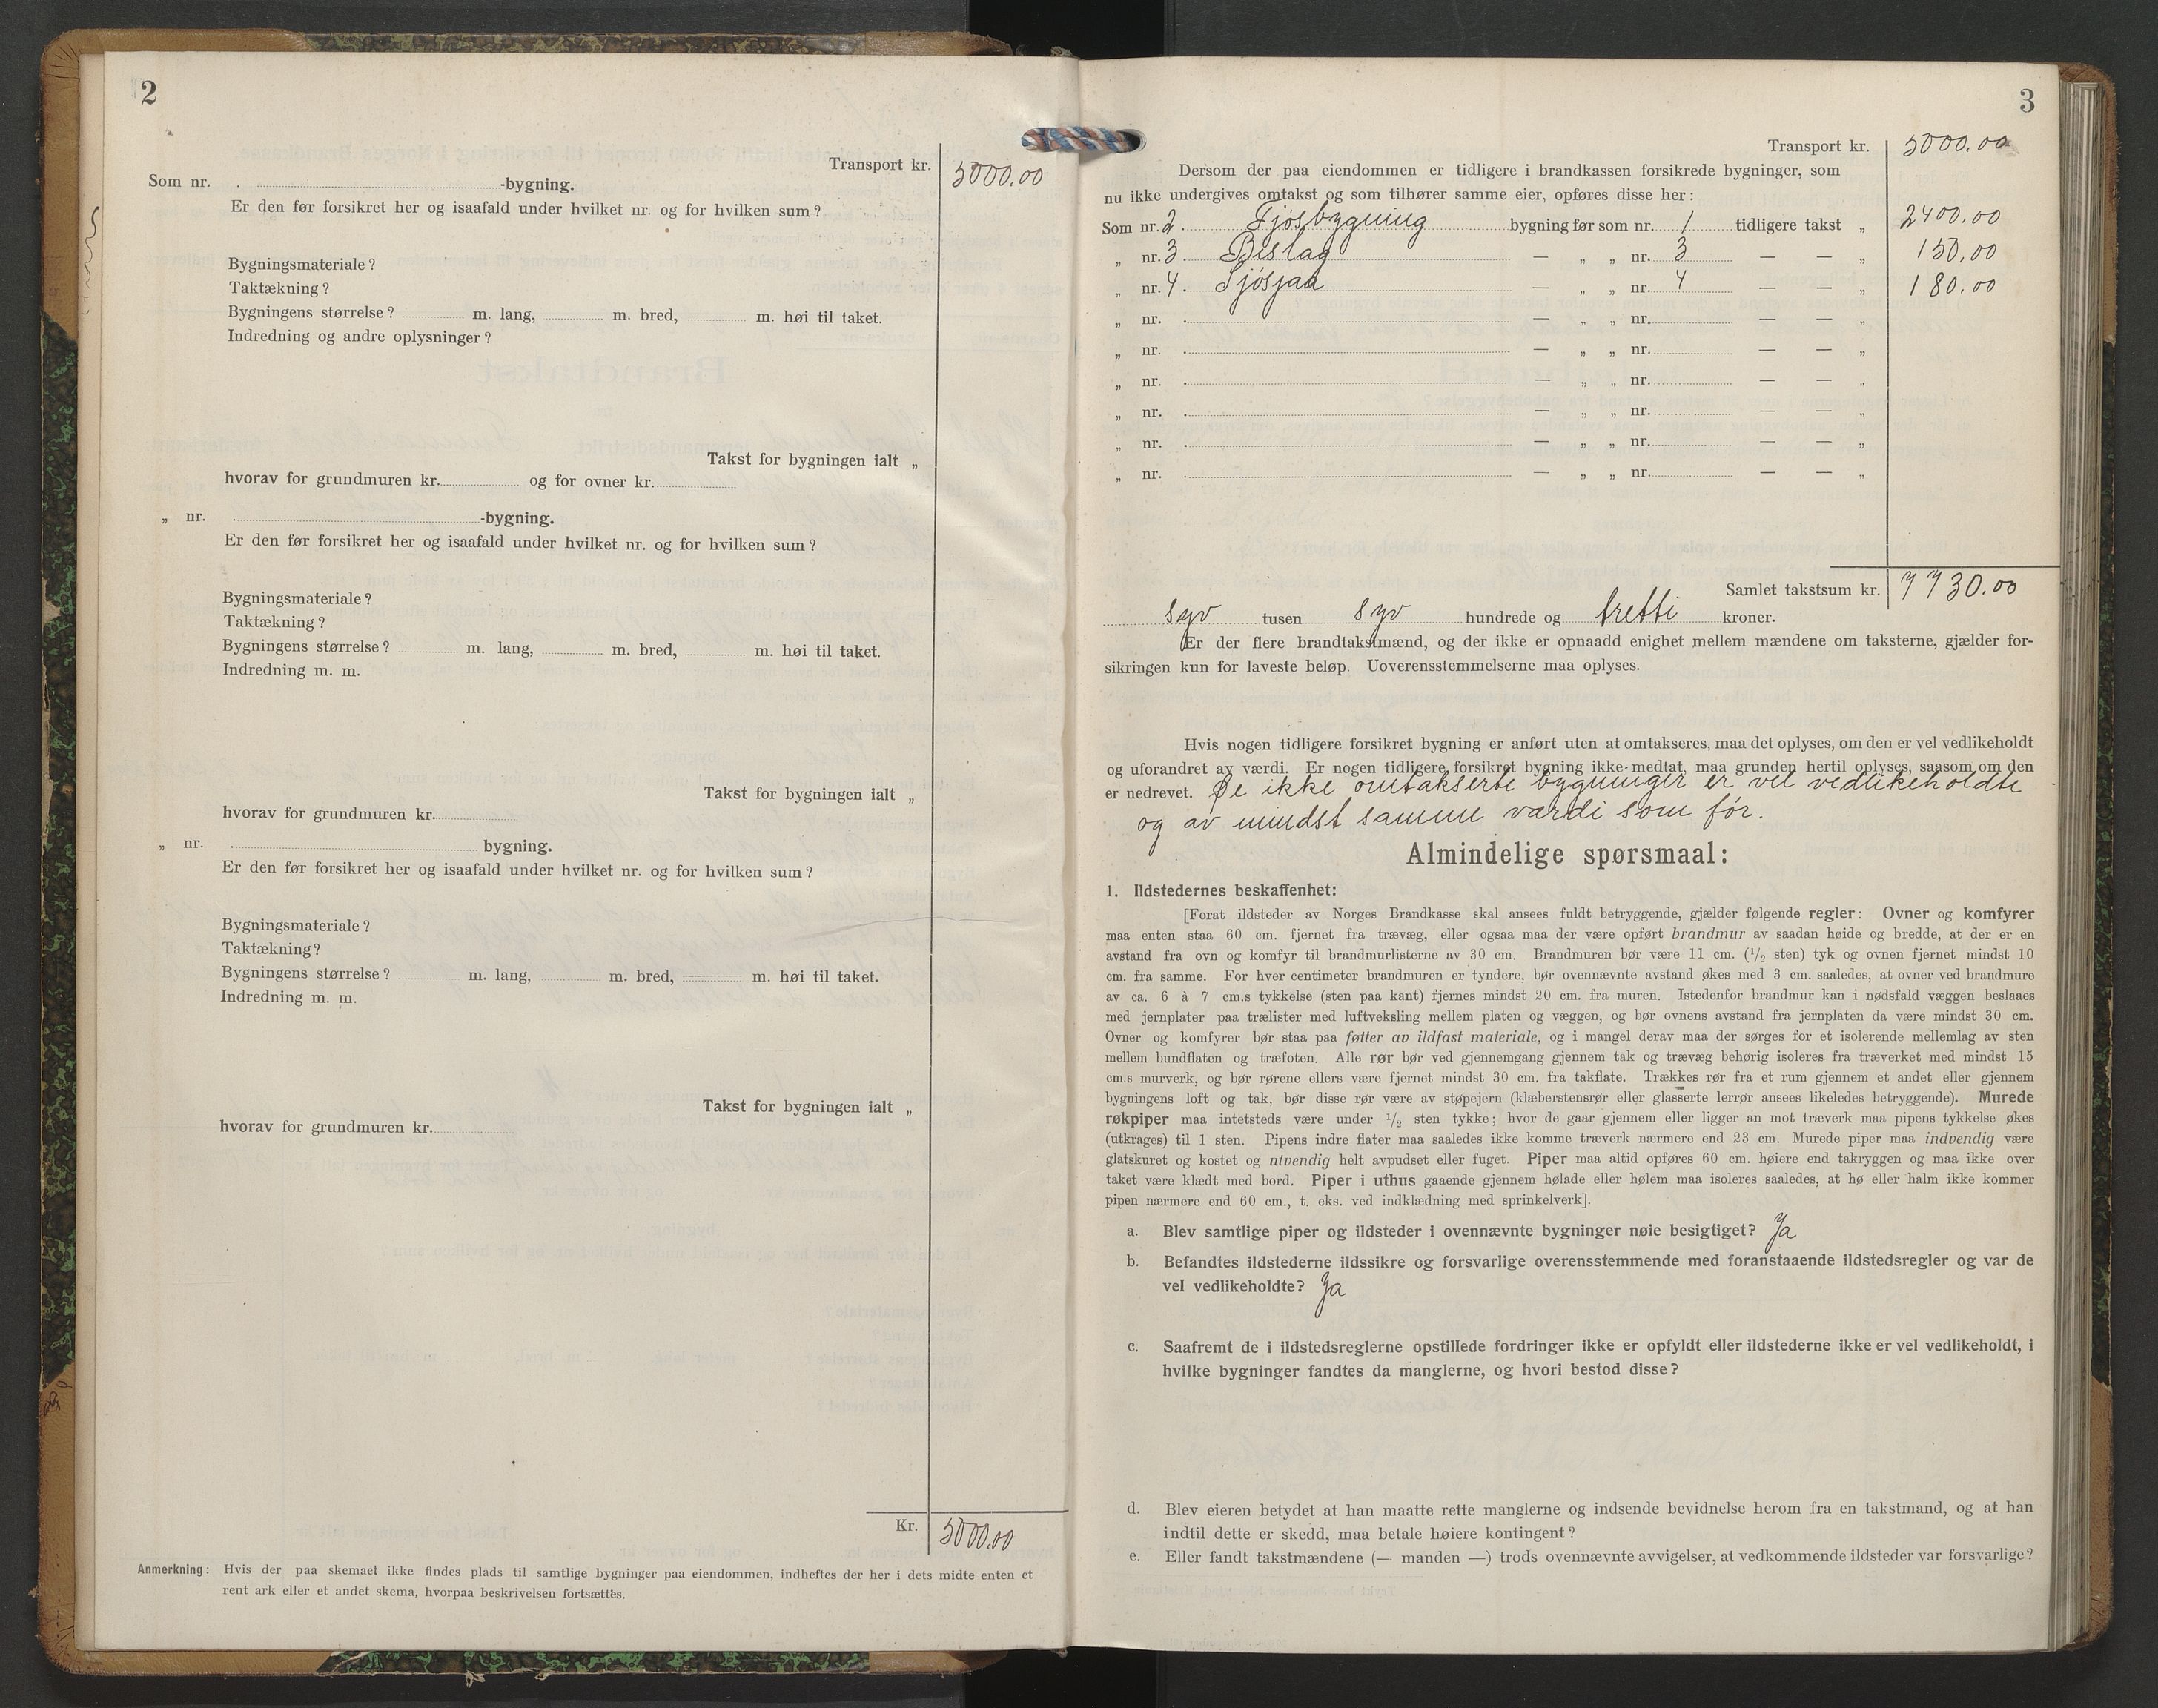 2
Transport kr. 5000.00
Som nr. . -bygning.
Er den før forsikret her og isaafald under hvilket nr. og for hvilken sum?
Bygningsmateriale?
Taktækning?
Bygningens størrelse? m. lang, m. bred, m. høi til taket.
Indredning og andre oplysninger?
Takst for bygningen ialt „
hvorav for grundmuren kr. og for ovner kr.
„ nr. -bygning.
Er den før forsikret her og isaafald under hvilket nr. og for hvilken sum?
Bygningsmateriale?
Taktækning?
Bygningens størrelse? m. lang, m. bred, m. høi til taket.
Indredning m. m.
Takst for bygningen ialt „
hvorav for grundmuren kr.
„ nr. bygning.
Er den før forsikret her og isaafald under hvilket nr. og for hvilken sum?
Bygningsmateriale?
Taktækning?
Bygningens størrelse? m. lang, m. bred, m. høi til taket.
Indredning m. m.
Takst for bygningen ialt „
hvorav for grundmuren kr.
Kr. 5000.00
Anmerkning: Hvis der paa skemaet ikke findes plads til samtlige bygninger paa eiendommen, indheftes der her i dets midte enten et
rent ark eller et andet skema, hvorpaa beskrivelsen fortsættes.
3
Transport kr. 5000.00
Dersom der paa eiendommen er tidligere i brandkassen forsikrede bygninger, som
nu ikke undergives omtakst og som tilhører samme eier, opføres disse her:
Som nr. 2. Fjøsbygning bygning før som nr. 1 tidligere takst „ 2400.00
„ nr. 3. Bislag — „ „ nr. 3 — — „ 150.00
„ nr. 4. Sjøsjaa — „ „ nr. 4 — — „ 180.00
„ nr. — „ „ nr. — — „
„ nr. — „ „ nr. — — „
„ nr. — „ „ nr. — — „
„ nr. — „ „ nr. — — „
„ nr. — „ „ nr. — — „
„ nr. — „ „ nr. — — „
Samlet takstsum kr. 7730.00
syv tusen syv hundrede og tretti kroner.
Er der flere brandtakstmænd, og der ikke er opnaadd enighet mellem mændene om taksterne, gjælder for-
sikringen kun for laveste beløp. Uoverensstemmelserne maa oplyses.
Hvis nogen tidligere forsikret bygning er anført uten at omtakseres, maa det oplyses, om den er vel vedlikeholdt
og uforandret av værdi. Er nogen tidligere forsikret bygning ikke medtat, maa grunden hertil oplyses, saasom om den
er nedrevet. De ikke omtakserte bygninger er vel vedlikeholdte
og av mindst samme værdi som før.
Almindelige spørsmaal:
1. Ildstedernes beskaffenhet:
[Forat ildsteder av Norges Brandkasse skal ansees fuldt betryggende, gjælder følgende regler: Ovner og komfyrer
maa enten staa 60 cm. fjernet fra trævæg, eller ogsaa maa der være opført brandmur av saadan høide og bredde, at der er en
avstand fra ovn og komfyr til brandmurlisterne av 30 cm. Brandmuren bør være 11 cm. (1/2 sten) tyk og ovnen fjernet mindst 10
cm. fra samme. For hver centimeter brandmuren er tyndere, bør ovennævnte avstand økes med 3 cm. saaledes, at ovner ved brandmure
av ca. 6 à 7 cm.s tykkelse (sten paa kant) fjernes mindst 20 cm. fra muren. Istedenfor brandmur kan i nødsfald væggen beslaaes
med jernplater paa trælister med luftveksling mellem platen og væggen, og bør ovnens avstand fra jernplaten da være mindst 30 cm.
Ovner og komfyrer bør staa paa føtter av ildfast materiale, og i mangel derav maa der sørges for et isolerende mellemlag av sten
mellem bundflaten og træfoten. Alle rør bør ved gjennemgang gjennem tak og trævæg behørig isoleres fra træverket med mindst 15
cm.s murverk, og bør rørene ellers være fjernet mindst 30 cm. fra takflate. Trækkes rør fra et rum gjennem et andet eller gjennem
bygningens loft og tak, bør disse rør være av støpejern (klæberstensrør eller glasserte lerrør ansees likeledes betryggende). Murede
røkpiper maa intetsteds være under 1/2 sten tykke; hvor de gaar gjennem eller ligger an mot træverk maa pipens tykkelse økes
(utkrages) til 1 sten. Pipens indre flater maa saaledes ikke komme træverk nærmere end 23 cm. Murede piper maa indvendig være
glatskuret og kostet og utvendig helt avpudset eller fuget. Piper maa altid opføres 60 cm. høiere end takryggen og maa ikke over
taket være klædt med bord. Piper i uthus gaaende gjennem hølade eller hølem maa isoleres saaledes, at hø eller halm ikke kommer
pipen nærmere end 60 cm., t. eks. ved indklædning med sprinkelverk].
a. Blev samtlige piper og ildsteder i ovennævnte bygninger nøie besigtiget? Ja
b. Befandtes ildstederne ildssikre og forsvarlige overensstemmende med foranstaaende ildstedsregler og var de
vel vedlikeholdte? Ja
c. Saafremt de i ildstedsreglerne opstillede fordringer ikke er opfyldt eller ildstederne ikke er vel vedlikeholdt, i
hvilke bygninger fandtes da manglerne, og hvori bestod disse?
d. Blev eieren betydet at han maatte rette manglerne og indsende bevidnelse herom fra en takstmand, og at han
indtil dette er skedd, maa betale høiere kontingent?
e. Eller fandt takstmændene (— manden —) trods ovennævnte avvigelser, at vedkommende ildsteder var forsvarlige?